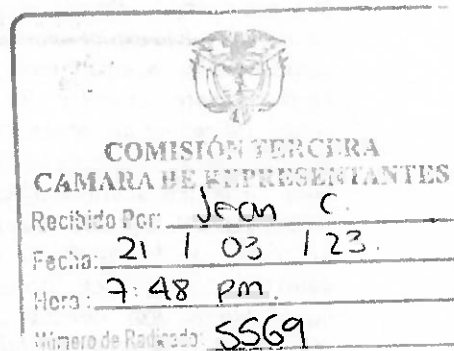 COMISIÓN TERCERA
CAMARA DE REPRESENTANTES
Recibido Por: Jean C.
Fecha: 21 / 03 / 23.
Hora: 7:48 pm.
Número de Radicado: 5569